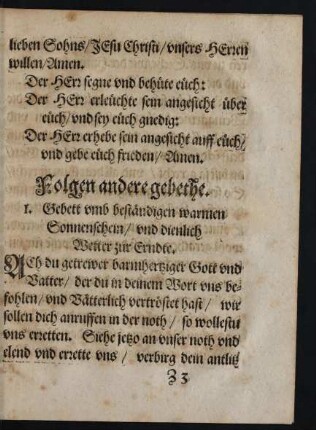 lieben Sohns/ JEsu Christi/ vnsers HErren
willen/ Amen.
Der HErr segne vnd behüte eüch:
Der HErr erleüchte sein angesicht über
eüch/ vnd sey eüch gnedig:
Der HErr erhebe sein angesicht auff eüch/
vnd gebe eüch frieden/ Amen.
Folgen andere gebethe.
1. Gebett vmb beständigen warmen
Sonnenschein/ vnd dienlich
Wetter zur Erndte.
ACh du getrewer barmhertziger Gott vnd
Vatter/ der du in deinem Wort vns be-
fohlen/ vnd Vätterlich vertröstet hast/ wir
sollen dich anruffen in der noth/ so wollestu
vns erretten. Siehe jetzo an vnser noth vnd
elend vnd errette vns/ verbirg dein antlitz
Z 3